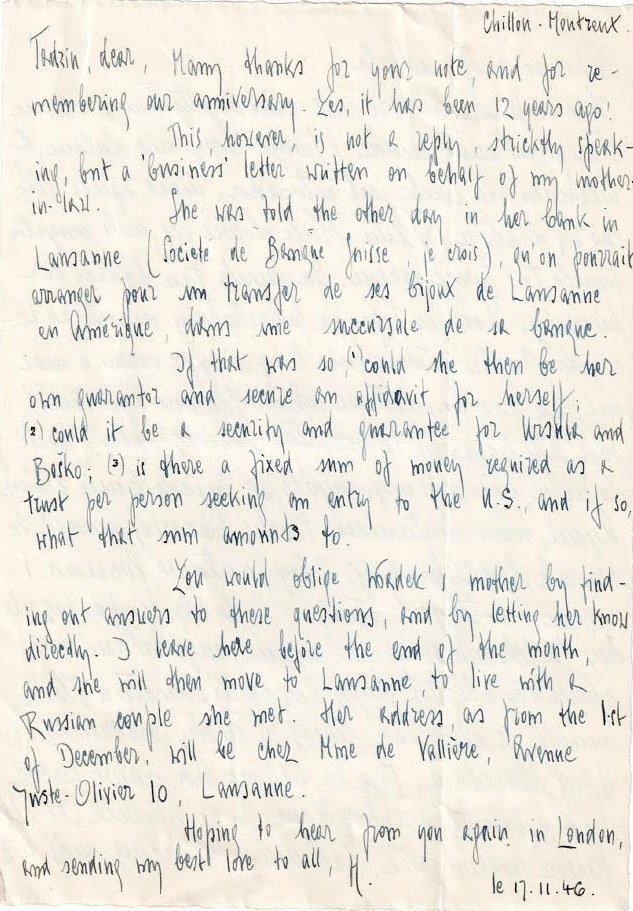 Chillon - Montreux.
Tadzin, dear, Many thanks for your note, and for re-
membering our anniversary. Yes, it has been 12 years ago!
This however, is not a reply, stricktly speak-
ing, but a 'business' letter written on behalf of my mother-
in-law. She was told the other day in her bank in
Lausanne (Societe de Banque Suisse, je crois), qu'on pourrait
arranger pour un transfer de ses bijoux de Lausanne
en Amérique, dans une succursale de sa banque.
If that was so, (1) could she then be her
own guarantor and secure an affidavit for herself;
(2) could it be a security and guarantee for Ursula and
Boško; (3) is there a fixed sum of money required as a
trust per person seeking an entry to the U.S., and if so,
what that sum amounts to.
You would oblige Wladek's mother by find-
ing out answers to these questions, and by letting her know
directly. I leave here before the end of the month,
and she will then move to Lausanne, to live with a
Russian couple she met. Her address, as from the 1st
of December, will be chez Mme de Vallière, Avenue
Juste-Olivier 10, Lausanne.
Hoping to hear from you again in London,
and sending my best love to all, H.
le 17.11.46.